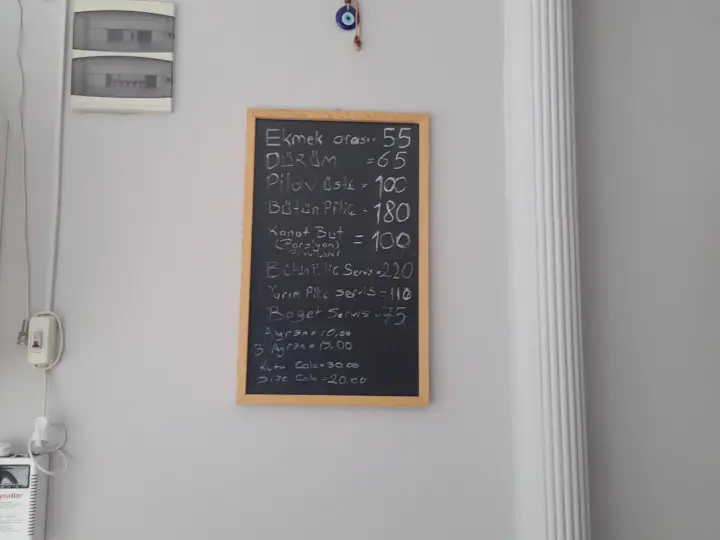 Ekmek arası= 55
DÜRÜM =65
Pilav üstü = 100
Bütün Piliç = 180
Kanat But = 100
(Porsiyon)
Bütün Piliç Servis=220
Yarım Piliç servis =110
Baget Servis =75
Ayran=10,00
Ayran=15,00
Kutu Cola=30.00
Şişe Cola=20.00